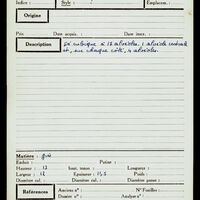 Indice : Style : ? Emplacem. :
Origine
Prix Date acquis. Date insc.
Description
cubique à 12 alvéoles. 1 alvéole centrale
et, sur chaque côté, 4 alvéoles.
Matière : grès
Enduit : Patine :
Hauteur : 12 haut. totale : Longueur :
Largeur : 12 Epaisseur : 11,5 Poids :
Diamètre col. : Diamètre panse :
Références
Ancien n° : N° Fouilles :
Dossier n° : Analyse n° :